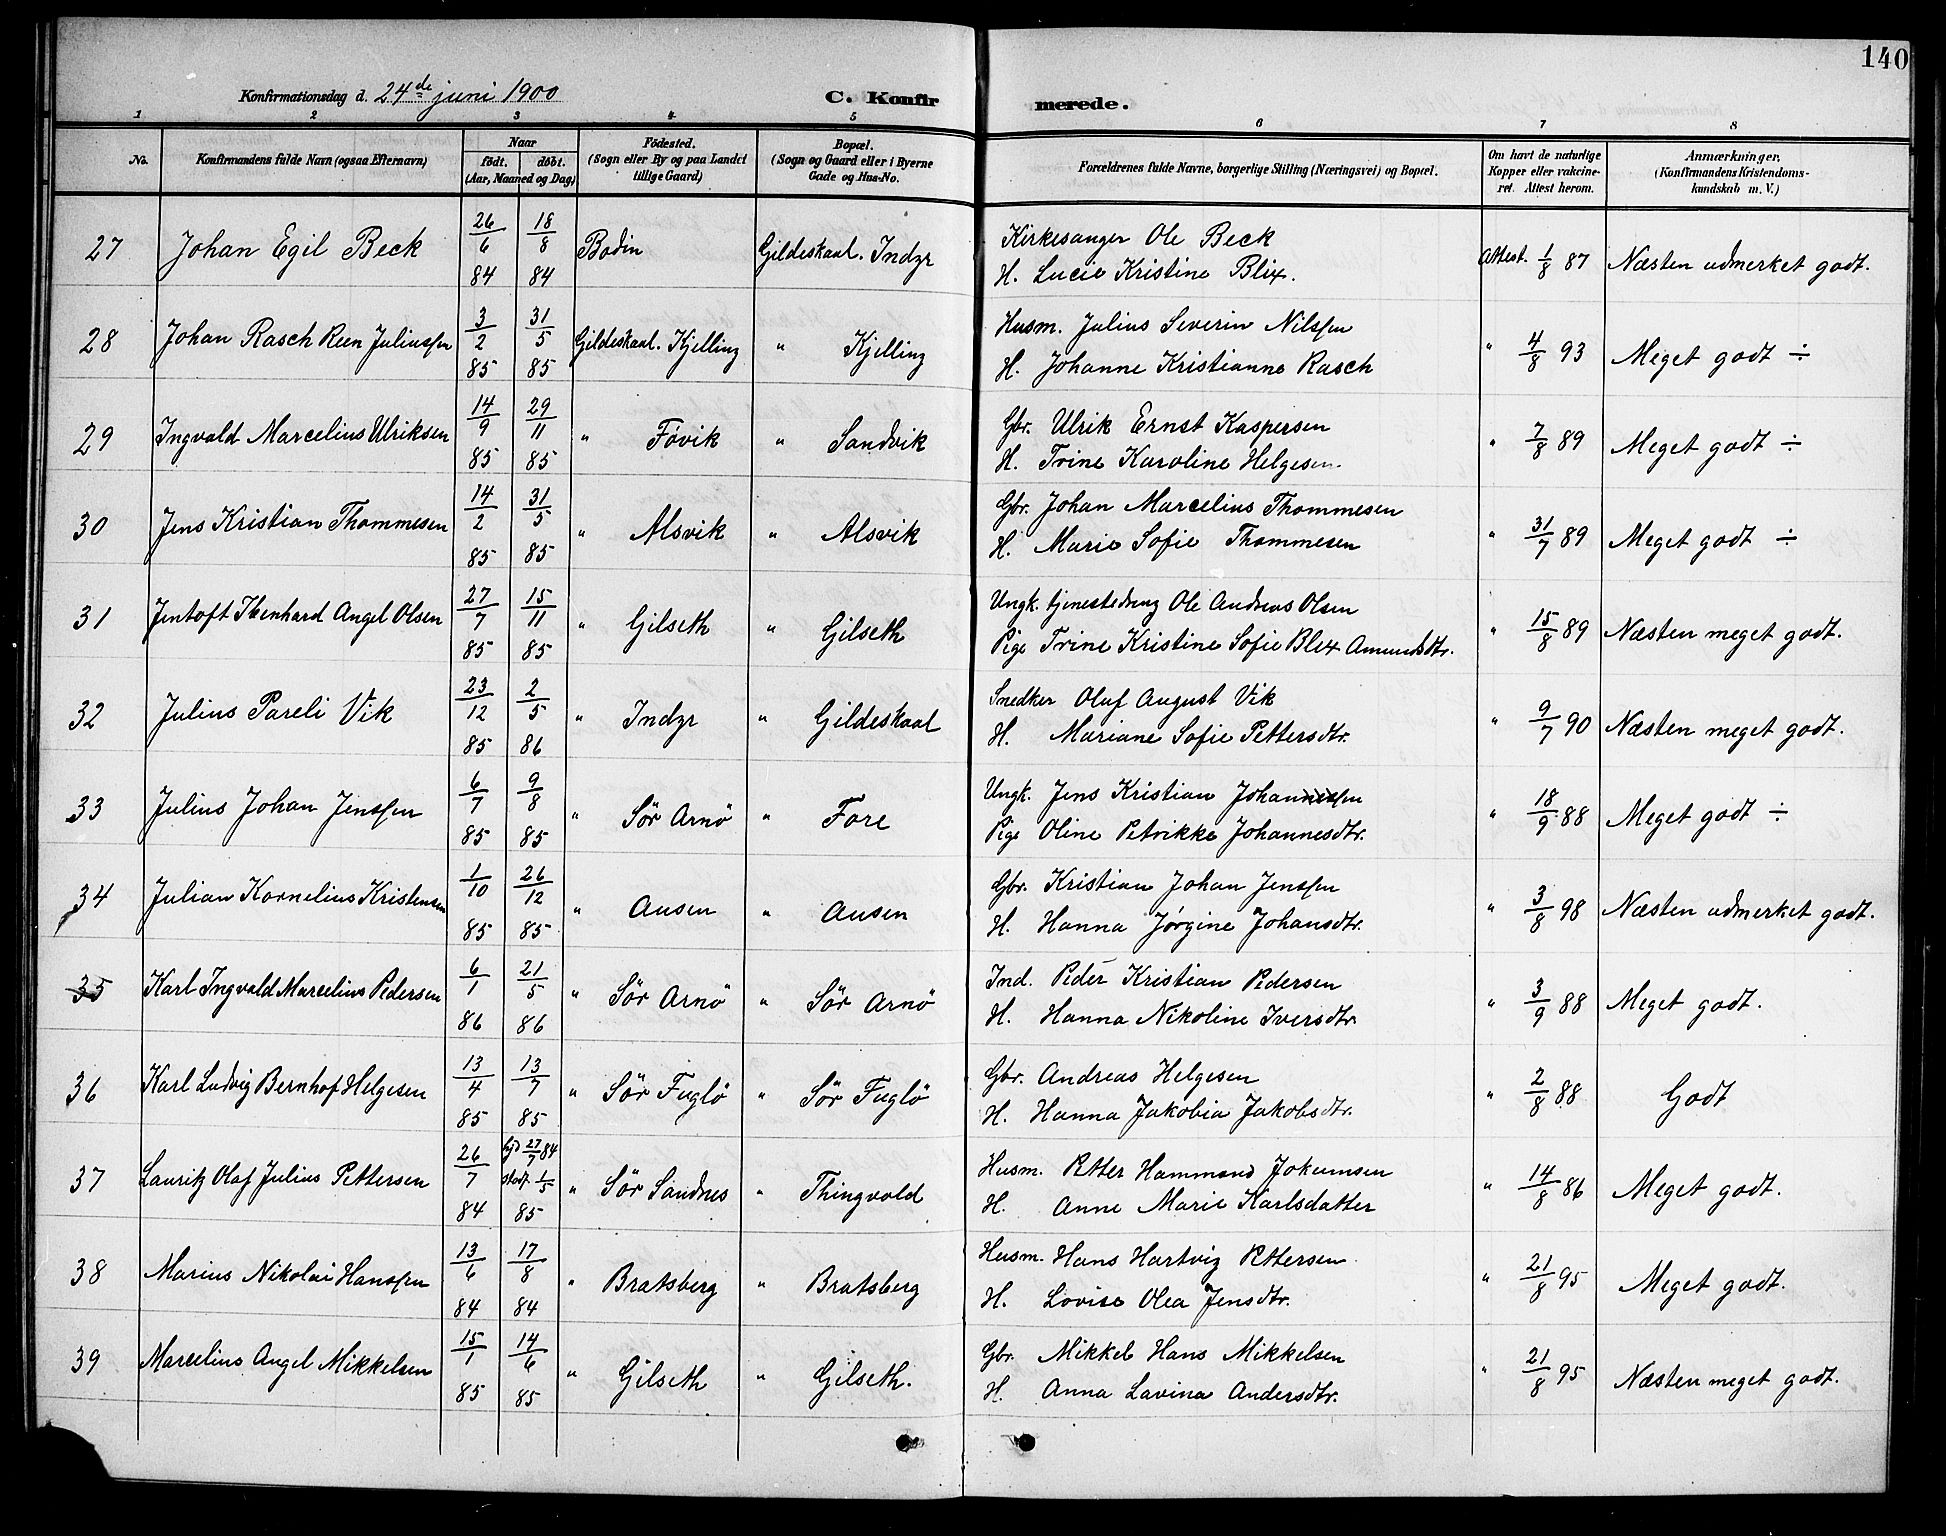 140
Konfirmationsdag d. 24de juni 1900 C. Konfirmerede.
1 2 3 4 5 6 7 8
No. Konfirmandens fulde Navn (ogsaa Efternavn) Naar født. døbt. (Aar, Maaned og Dag) Födested. (Sogn eller By og paa Landet tillige Gaard) Bopæl. (Sogn og Gaard eller i Byerne Gade og Hus-No. Forældrenes fulde Navne, borgerlige Stilling (Næringsvei) og Bopæl. Om havt de naturlige Kopper eller vakcineret. Attest herom. Anmærkninger. (Konfirmandens Kristendomskundskab m. V.)
27 Johan Egil Beck 26/6 84 18/8 84 Bodin Gildeskaal. Indyr Kirkesanger Ole Beck Attest. 1/8 87 Næsten udmerket godt.
H. Lucie Kristine Blix.
28 Johan Rasch Reen Juliussen 3/2 85 31/5 85 Gildeskaal. Kjelling " Kjelling Husm. Julius Severin Nilssen " 4/8 93 Meget godt ÷
H. Johanne Kristianne Rasch
29 Ingvald Marcelius Ulriksen 14/9 85 29/11 85 " Fövik " Sandvik Gbr. Ulrik Ernst Kaspersen " 7/8 89 Meget godt ÷
H. Trine Karoline Helgesen.
30 Jens Kristian Thommesen 14/2 85 31/5 85 " Alsvik " Alsvik Gbr. Johan Marcelius Thommesen " 31/7 89 Meget godt ÷
H. Marie Sofie Thommesen
31 Jentoft Angel Olsen 27/7 85 15/11 85 " Gilseth " Gilseth Ungk. tjenestedreng Ole Andreas Olsen " 15/8 89 Næsten meget godt.
Pige Trine Kristine Sofie Blix Amundsdtr.
32 Julius Pareli Vik 23/12 85 2/5 86 " Indyr " Gildeskaal Snedker Oluf August Vik " 9/7 90 Næsten meget godt.
H. Mariane Sofie Pettersdtr.
33 Julius Johan Jenssen 6/7 85 9/8 85 " Sör Arnö " Fore Ungk. Jens Kristian Johannessen " 18/9 88 Meget godt ÷
Pige Oline Petrikke Johannesdtr.
34 Julian Kornelius Kristensen 1/10 85 26/12 85 " Ausen " Ausen Gbr. Kristian Johan Jenssen " 3/8 98 Næsten udmerket godt.
H. Hanna Jørgine Johansdtr.
35 Karl Ingvald Marcelius Pedersen 6/1 86 21/5 86 " Sör Arnö " Sör Arnö Ind. Peder Kristian Pedersen " 3/9 88 Meget godt.
H. Hanna Nikoline Iversdtr
36 Karl Ludvig Bernhof Helgesen 13/4 85 13/7 85 " Sör Fuglö " Sör Fuglö Gbr. Andreas Helgesen " 2/8 88 Godt
H. Hanna Jakobia Jakobsdtr.
37 Lauritz Olaf Julius Pettersen 26/7 84 hjd 27/7 84 stadf. 1/5 85 " Sör Sandnes " Thingvold Husm. Petter Hammond Jokumsen " 14/8 86 Meget godt.
H. Anne Marie Karlsdatter
38 Marius Nikolai Hanssen 13/6 84 17/8 84 " Bratsberg " Bratsberg Husm. Hans Hartvig Pettersen " 21/8 95 Meget godt.
H. Lovise Olea Jensdtr.
39 Marcelius Angel Mikkelsen 15/1 85 14/6 85 " Gilseth " Gilseth. Gbr. Mikkel Hans Mikkelsen " 21/8 95 Næsten meget godt.
H. Anna Lavina Andersdtr.